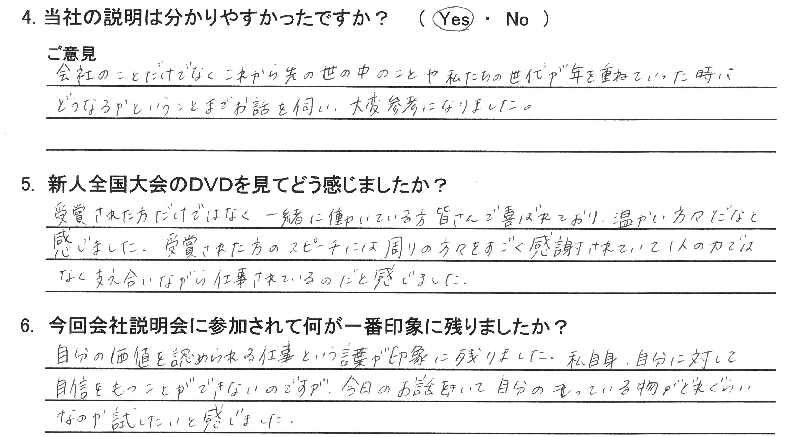 4. 当社の説明は分かりやすかったですか？ （ Yes ・ No ）
ご意見
会社のことだけでなくこれから先の世の中のことや私たちの世代が年を重ねていった時に
どうなるかということまでお話を伺い、大変参考になりました。
5. 新人全国大会のDVDを見てどう感じましたか？
受賞された方だけではなく一緒に働いている方皆さんで喜ばれており、温かい方々だなと
感じました。受賞された方のスピーチには周りの方々をすごく感謝されていて1人の力では
なく支え合いながら仕事されているのだと感じました。
6. 今回会社説明会に参加されて何が一番印象に残りましたか？
自分の価値を認められる仕事という言葉が印象に残りました。私自身、自分に対して
自信をもつことができないのですが、今日のお話聞いて自分のもっている物がどれぐらい
なのか試したいと感じました。